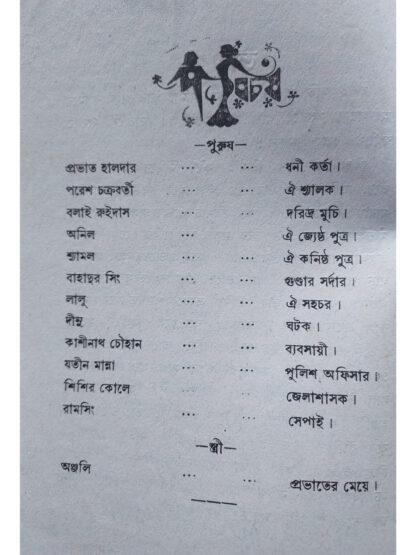 পরিচয়
—পুরুষ—
প্রভাত হালদার ... ... ধনী কর্তা।
পরেশ চক্রবর্তী ... ... ঐ শ্যালক।
বলাই রুইদাস ... ... দরিদ্র মুচি।
অনিল ... ... ঐ জ্যেষ্ঠ পুত্র।
শ্যামল ... ... ঐ কনিষ্ঠ পুত্র।
বাহাদুর সিং ... ... গুণ্ডার সর্দার।
লালু ... ... ঐ সহচর।
দীনু ... ... ঘটক।
কাশীনাথ চৌহান ... ... ব্যবসায়ী।
যতীন মান্না ... ... পুলিশ অফিসার।
শিশির কোলে ... ... জেলাশাসক।
রামসিং ... ... সেপাই।
—স্ত্রী—
অঞ্জলি ... ... প্রভাতের মেয়ে।